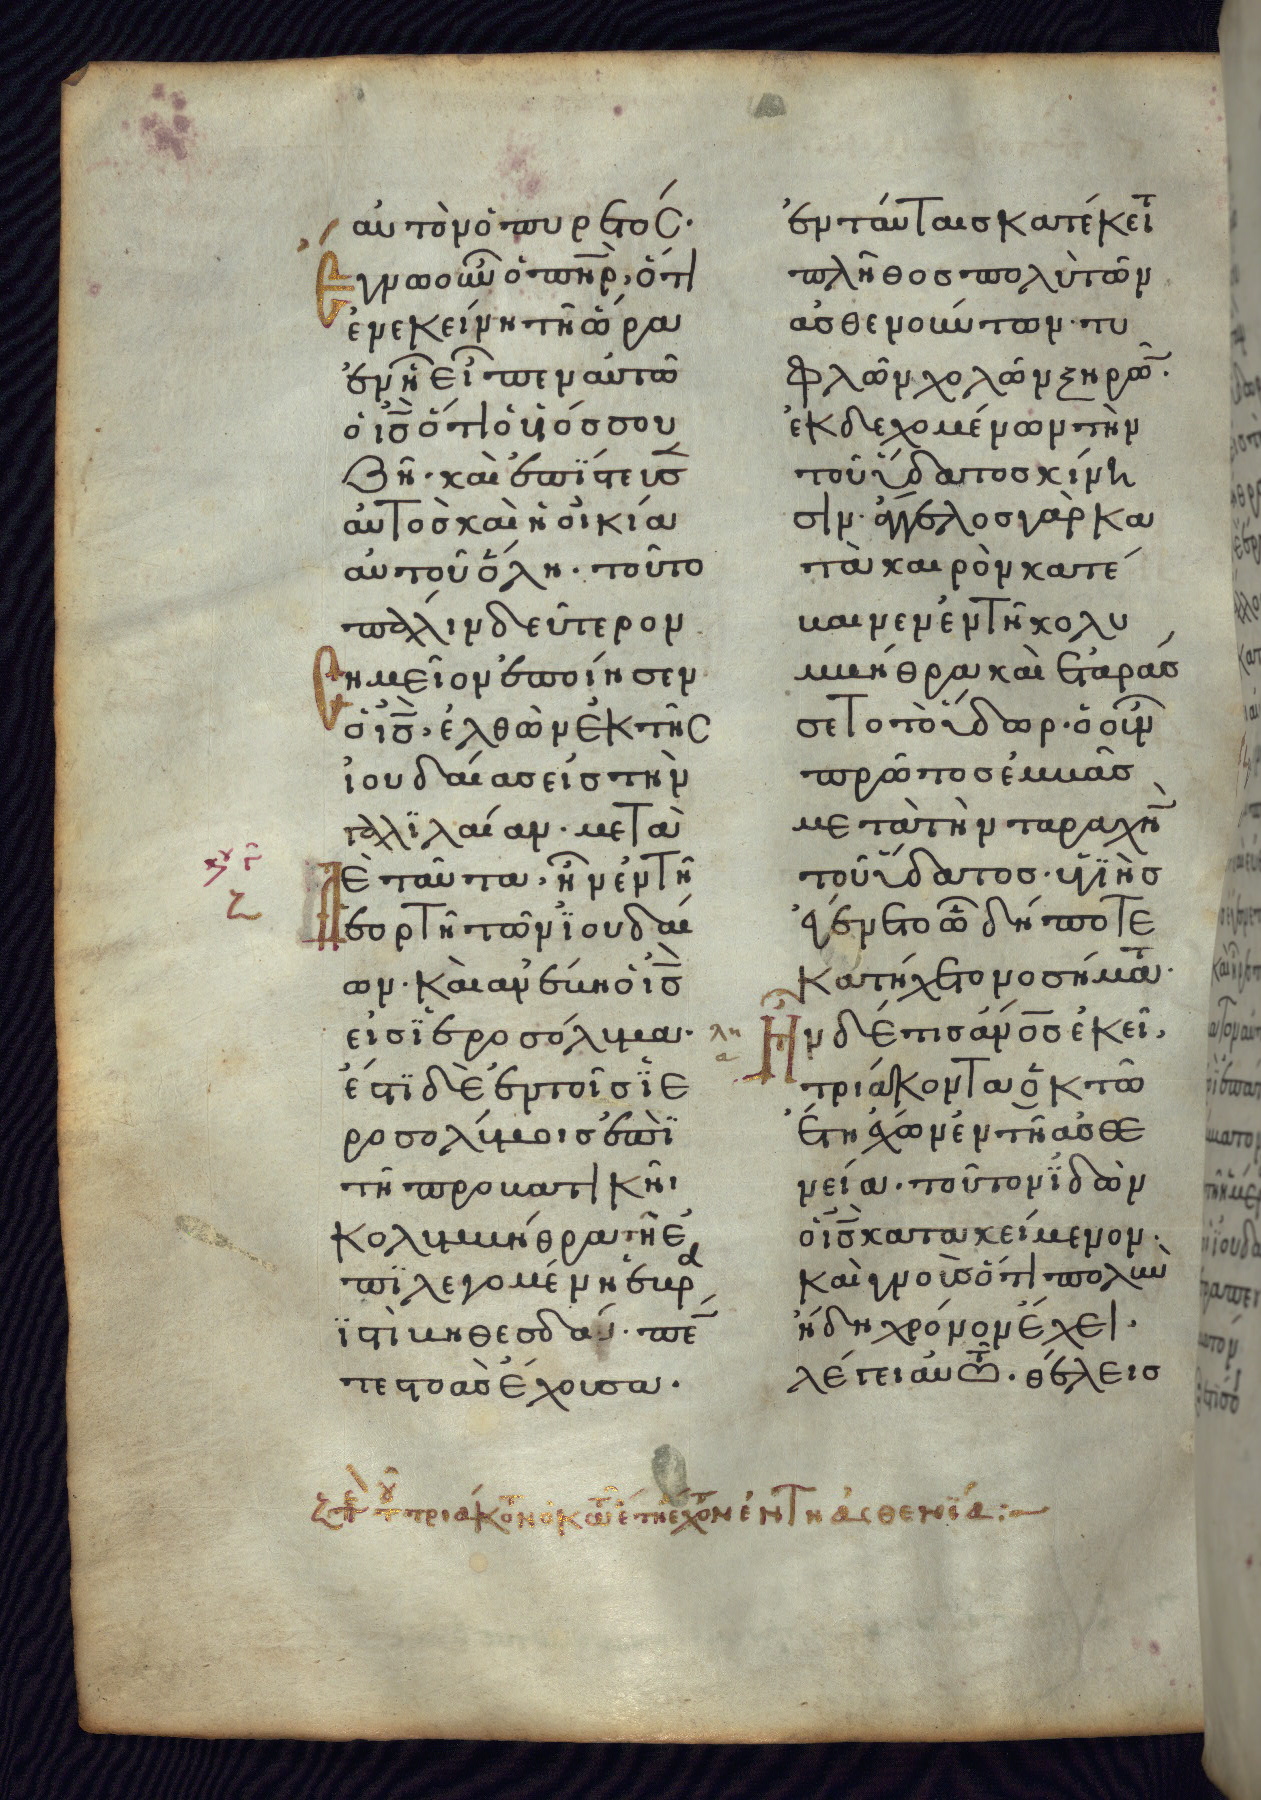 αὐτὸν ὁ πυρετός·
Ἔγνω οὖν ὁ πῆρ, ὅτι
ἐν ἐκείνη τῆ ὥρα
ἐν ἧ εἶπεν αὐτῶ
ὁ ἰς ὅτι ὁ υἱός σου
ζῆ· καὶ ἐπίστευσ
αὐτὸς καὶ ἡ οἰκία
αὐτοῦ ὅλη· τοῦτο
πάλιν δεύτερον
σημεῖον ἐποίησεν
ὁ ἰς, ἐλθὼν ἐκ τῆς
ἰουδαίας εἰς τὴν
γαλιλαίαν· μετὰ
δὲ ταῦτα, ἦν ἑν τῆ
ἑορτῆ τῶν ἰουδαί
ων· καὶ ἀνέβη ὁ ἰς
εἰς ἱεροσόλυμα·
ἔστι δὲ ἐν τοῖς ἱε
ροσολύμοις ἐπὶ
τῆ προβατικῆι
κολυμβήθρα τῆ ἐ
πιλεγομένη ἑβρα
ϊστὶ βηθεσδά· πέν
τε στοὰς ἔχουσα·
ἐν ταύταις κατέκειτ
πλῆθος πολὺ τῶν
ἀσθενούντων· τυ
φλῶν χολῶν ξηρῶ·
ἐκδεχομένων τὴν
τοῦ ὕδατος κίνη
σιν· ἄγγελος γὰρ κα
τὰ καιρὸν κατέ
βαινεν ἐν τῆ κολυ
μβήθρα καὶ ἐταράσ
σετο τὸ ὕδωρ· ὁ οὖν
πρῶτος ἐμβὰσ
μετὰ τὴν ταραχὴν
τοῦ ὕδατος· ὑγιὴς
ἐγένετο ὧ δήποτε
κατήχετο νοσήματ·
Ἦν δέ τις ἄνος ἐκεῖ,
τριάκοντα ὀκτὼ
ἔτη ἔχων ἐν τῆ ἀσθε
νεία· τοῦτον ἰδὼν
ὁ ἰς κατακείμενον·
καὶ γνοὺς ὅτι πολὺν
ἤδη χρόνον ἔχει·
λέγει αὐτῶ· θέλεις
ζ πε τ τριάκοντ ὀκτω ἔτη ἔχοντ ἐν τῆ ἀσθενία :~